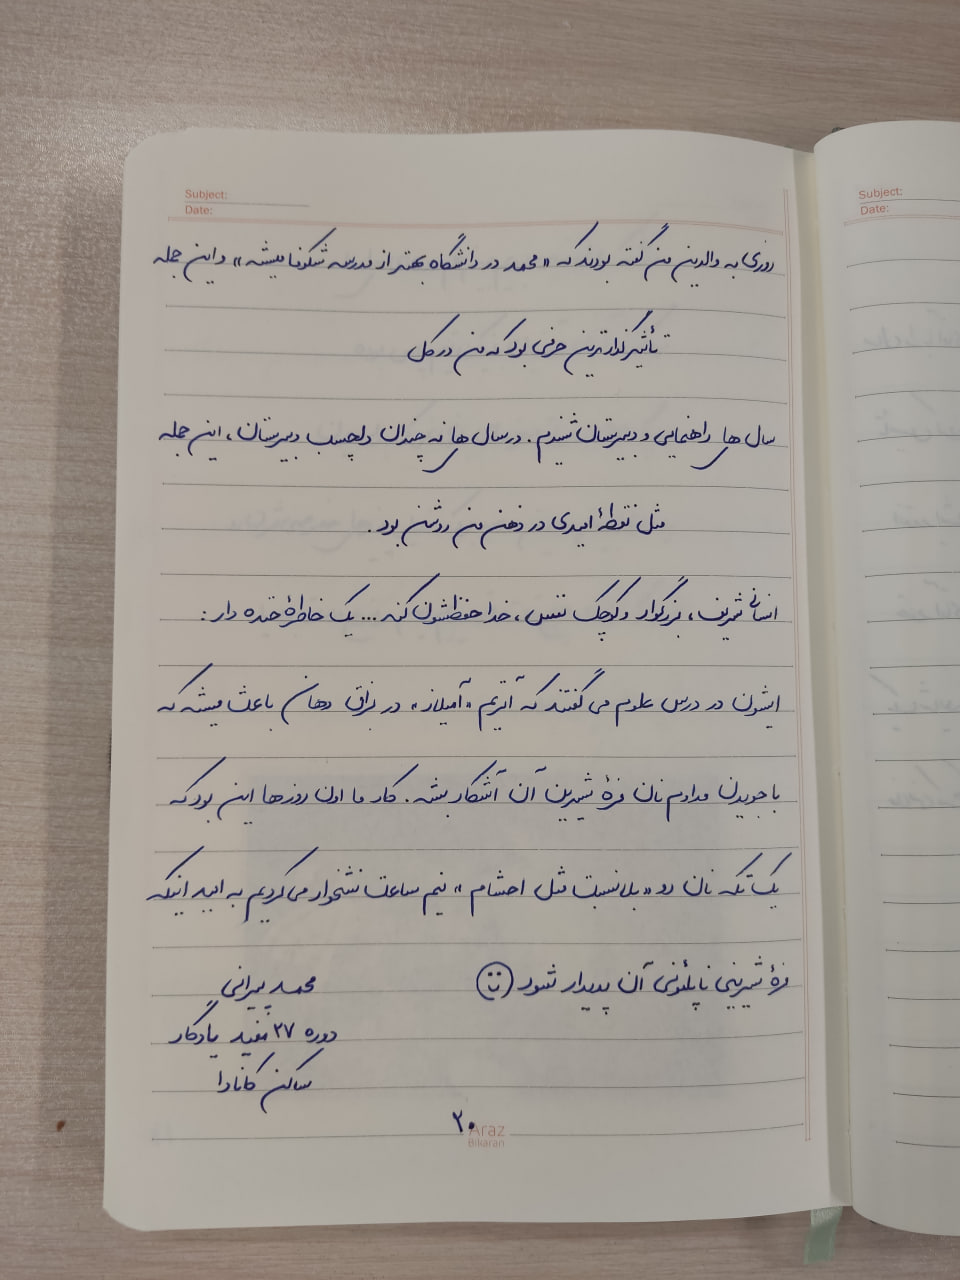 Subject:
Date:
روزی به والدین من گفته بودند که «محمد در دانشگاه بهتر از مدرسه شکوفا میشه» و این جمله
تأثیرگذارترین حرفی بود که من در کل
سال های راهنمایی و دبیرستان شنیدم. در سال های نه چندان دلچسب دبیرستان، این جمله
مثل نقطهٔ امیدی در ذهن من روشن بود.
انسانی شریف، بزرگوار و کوچک نفس، خدا حفظشون کنه... یک خاطرهٔ خنده دار:
ایشون در درس علوم می گفتند که آنزیم «آمیلاز» در بزاق دهان باعث میشه که
با جویدن مداوم نان مزهٔ شیرین آن آشکار بشه. کار ما اون روزها این بود که
یک تکه نان رو «بلانسبت مثل احشام» نیم ساعت نشخوار می کردیم به امید اینکه
مزهٔ شیرینی ناپلئونی آن پدیدار شود
محمد پیرانی
دوره ۲۷ مفید یادگار
ساکن کانادا
۲۰
Araz
Bikaran
Subject:
Date: